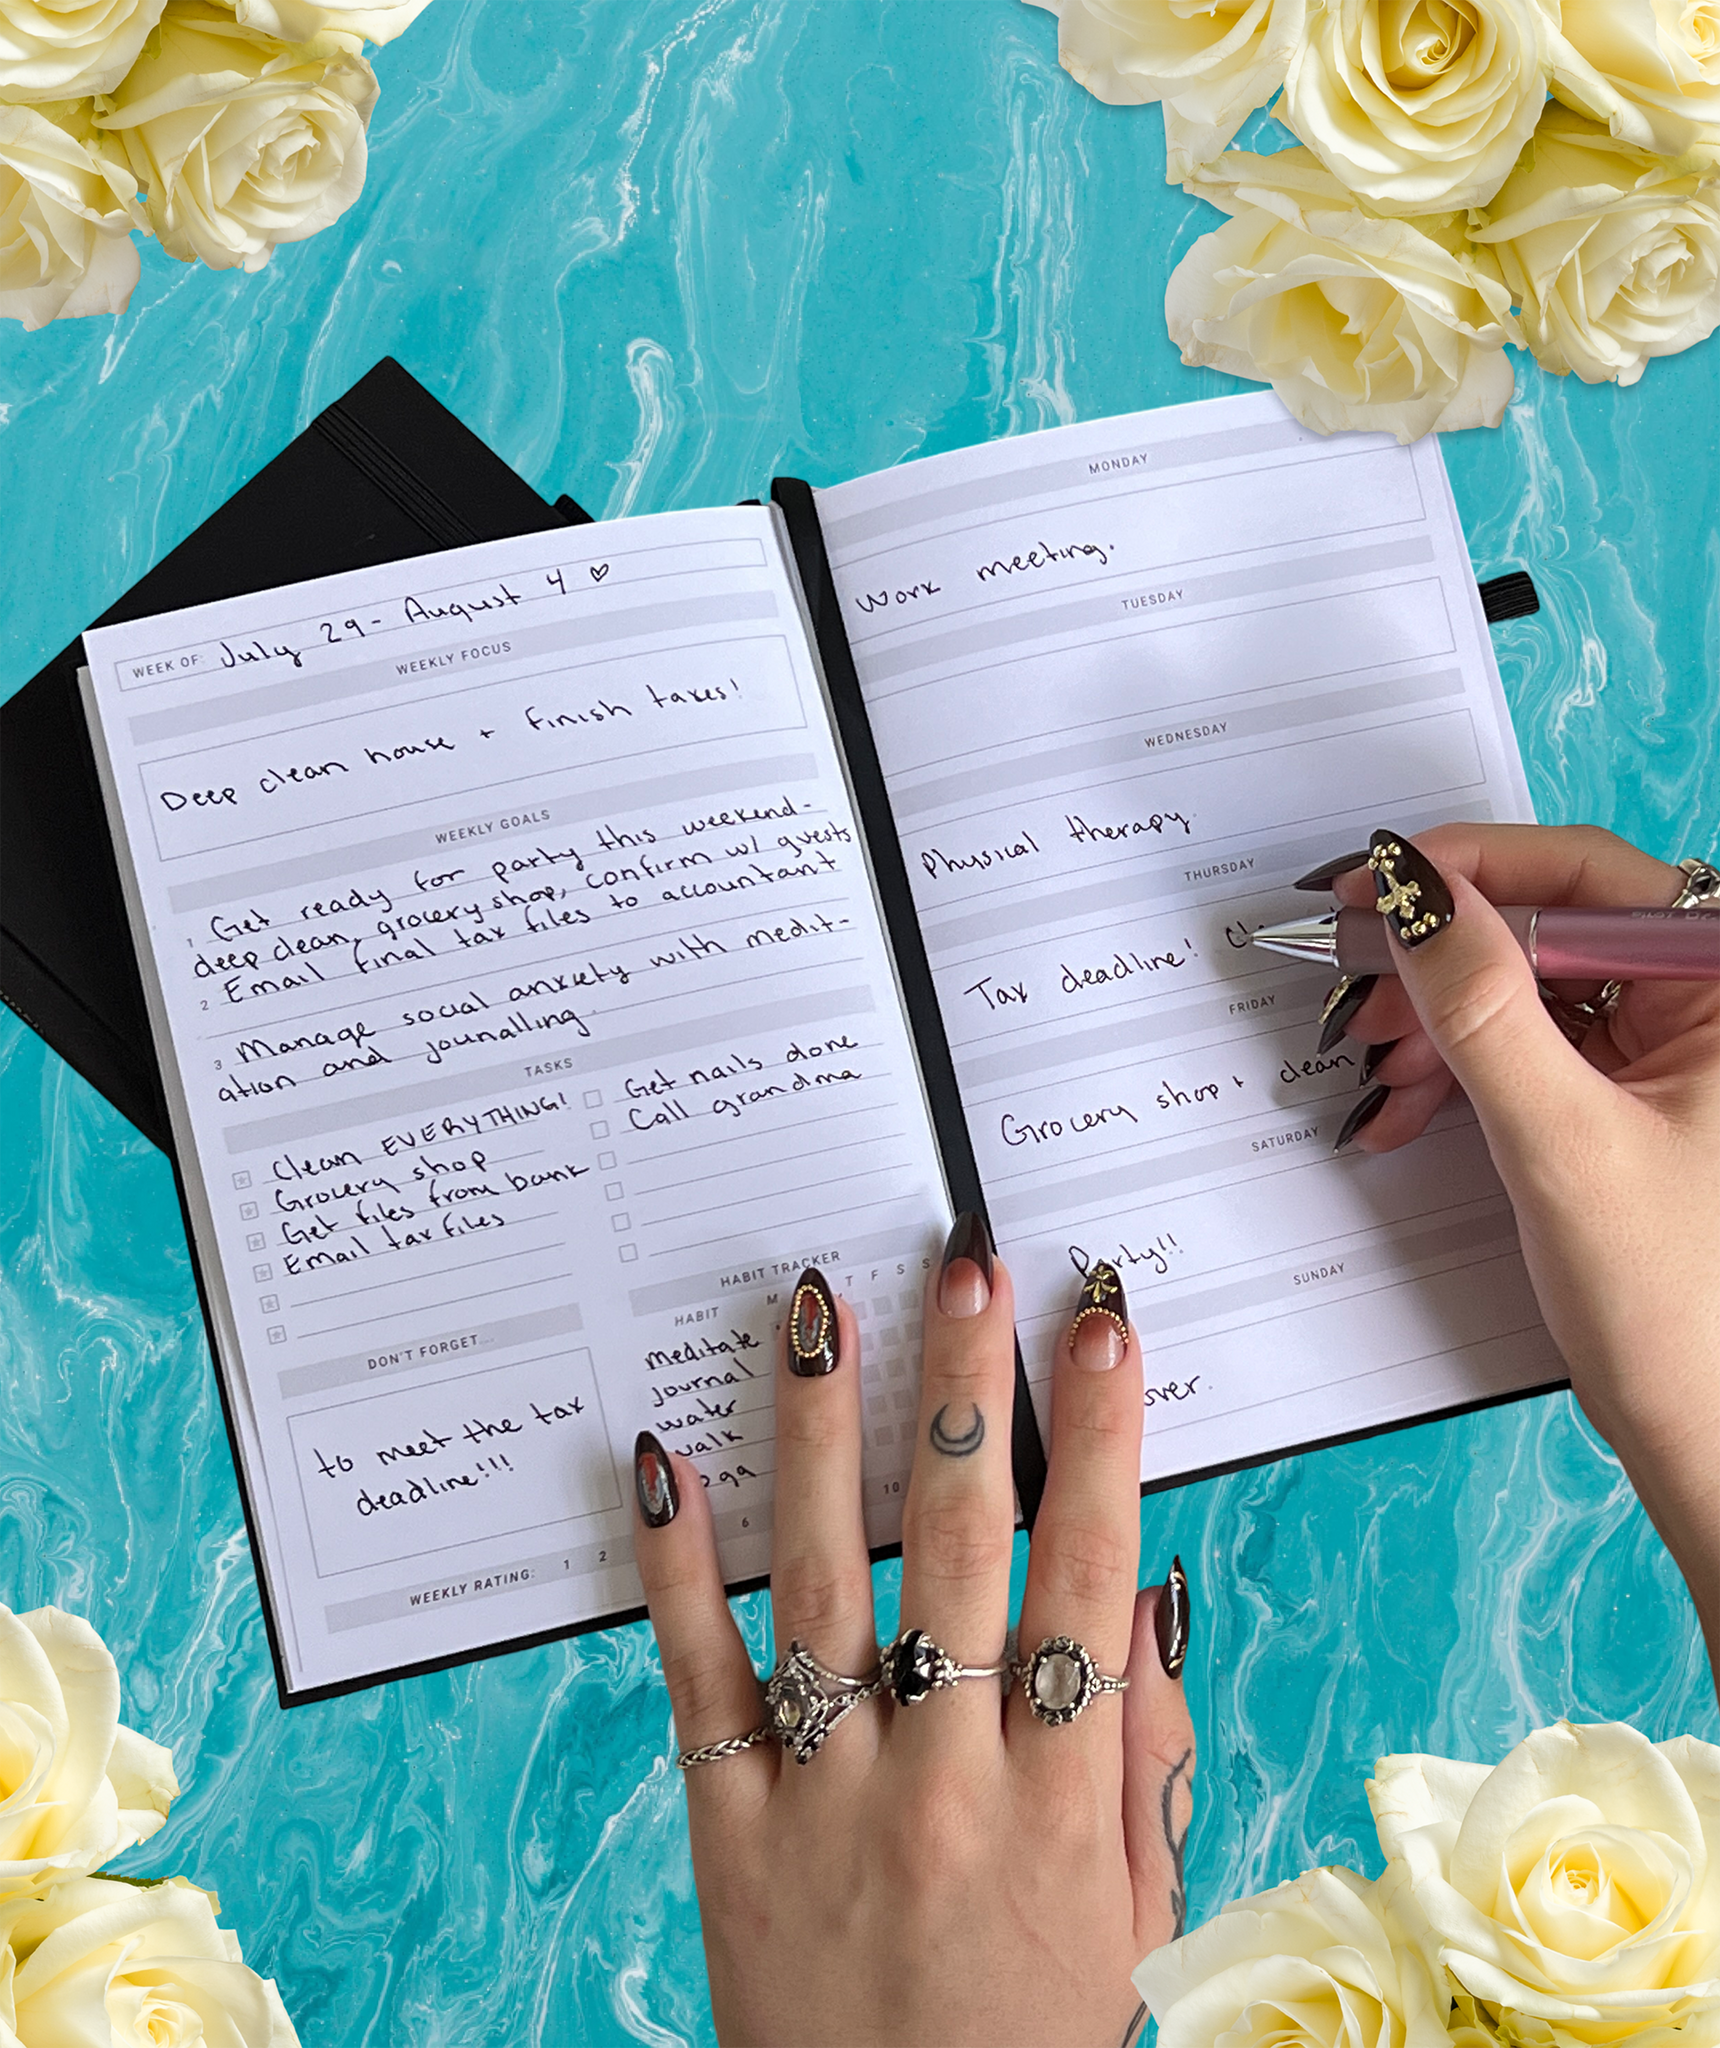 WEEK OF: July 29 - August 4 ♡
WEEKLY FOCUS
Deep clean house + finish taxes!
WEEKLY GOALS
1 Get ready for party this weekend-
deep clean, grocery shop, confirm w/ guests
2 Email final tax files to accountant
3 Manage social anxiety with medit-
ation and jounalling.
TASKS
Clean EVERYTHING!
Grocery shop
Get files from bank
Email tax files
Get nails done
Call grandma
DON'T FORGET...
to meet the tax
deadline!!!
HABIT TRACKER
HABIT M T F S S
meditate
journal
water
walk
WEEKLY RATING: 1 2 6 10
MONDAY
Work meeting.
TUESDAY
WEDNESDAY
Physical therapy
THURSDAY
Tax deadline!
FRIDAY
Grocery shop + clean
SATURDAY
Party!!
SUNDAY
PILOT